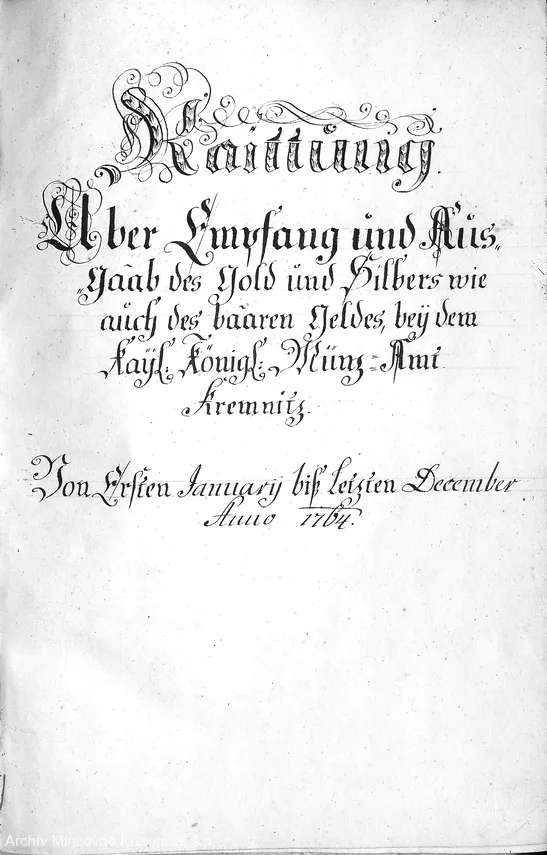 Raittung.
Über Empfang und Aus„
„Gaab des Gold und Silbers wie
auch des baaren Geldes, beÿ dem
Kaÿl: Königl: Münz=Amt
Kremnitz.
Von Ersten Januarÿ biß letzten December
Anno 1764.
Archiv Mincovne Kremnica, š.p.